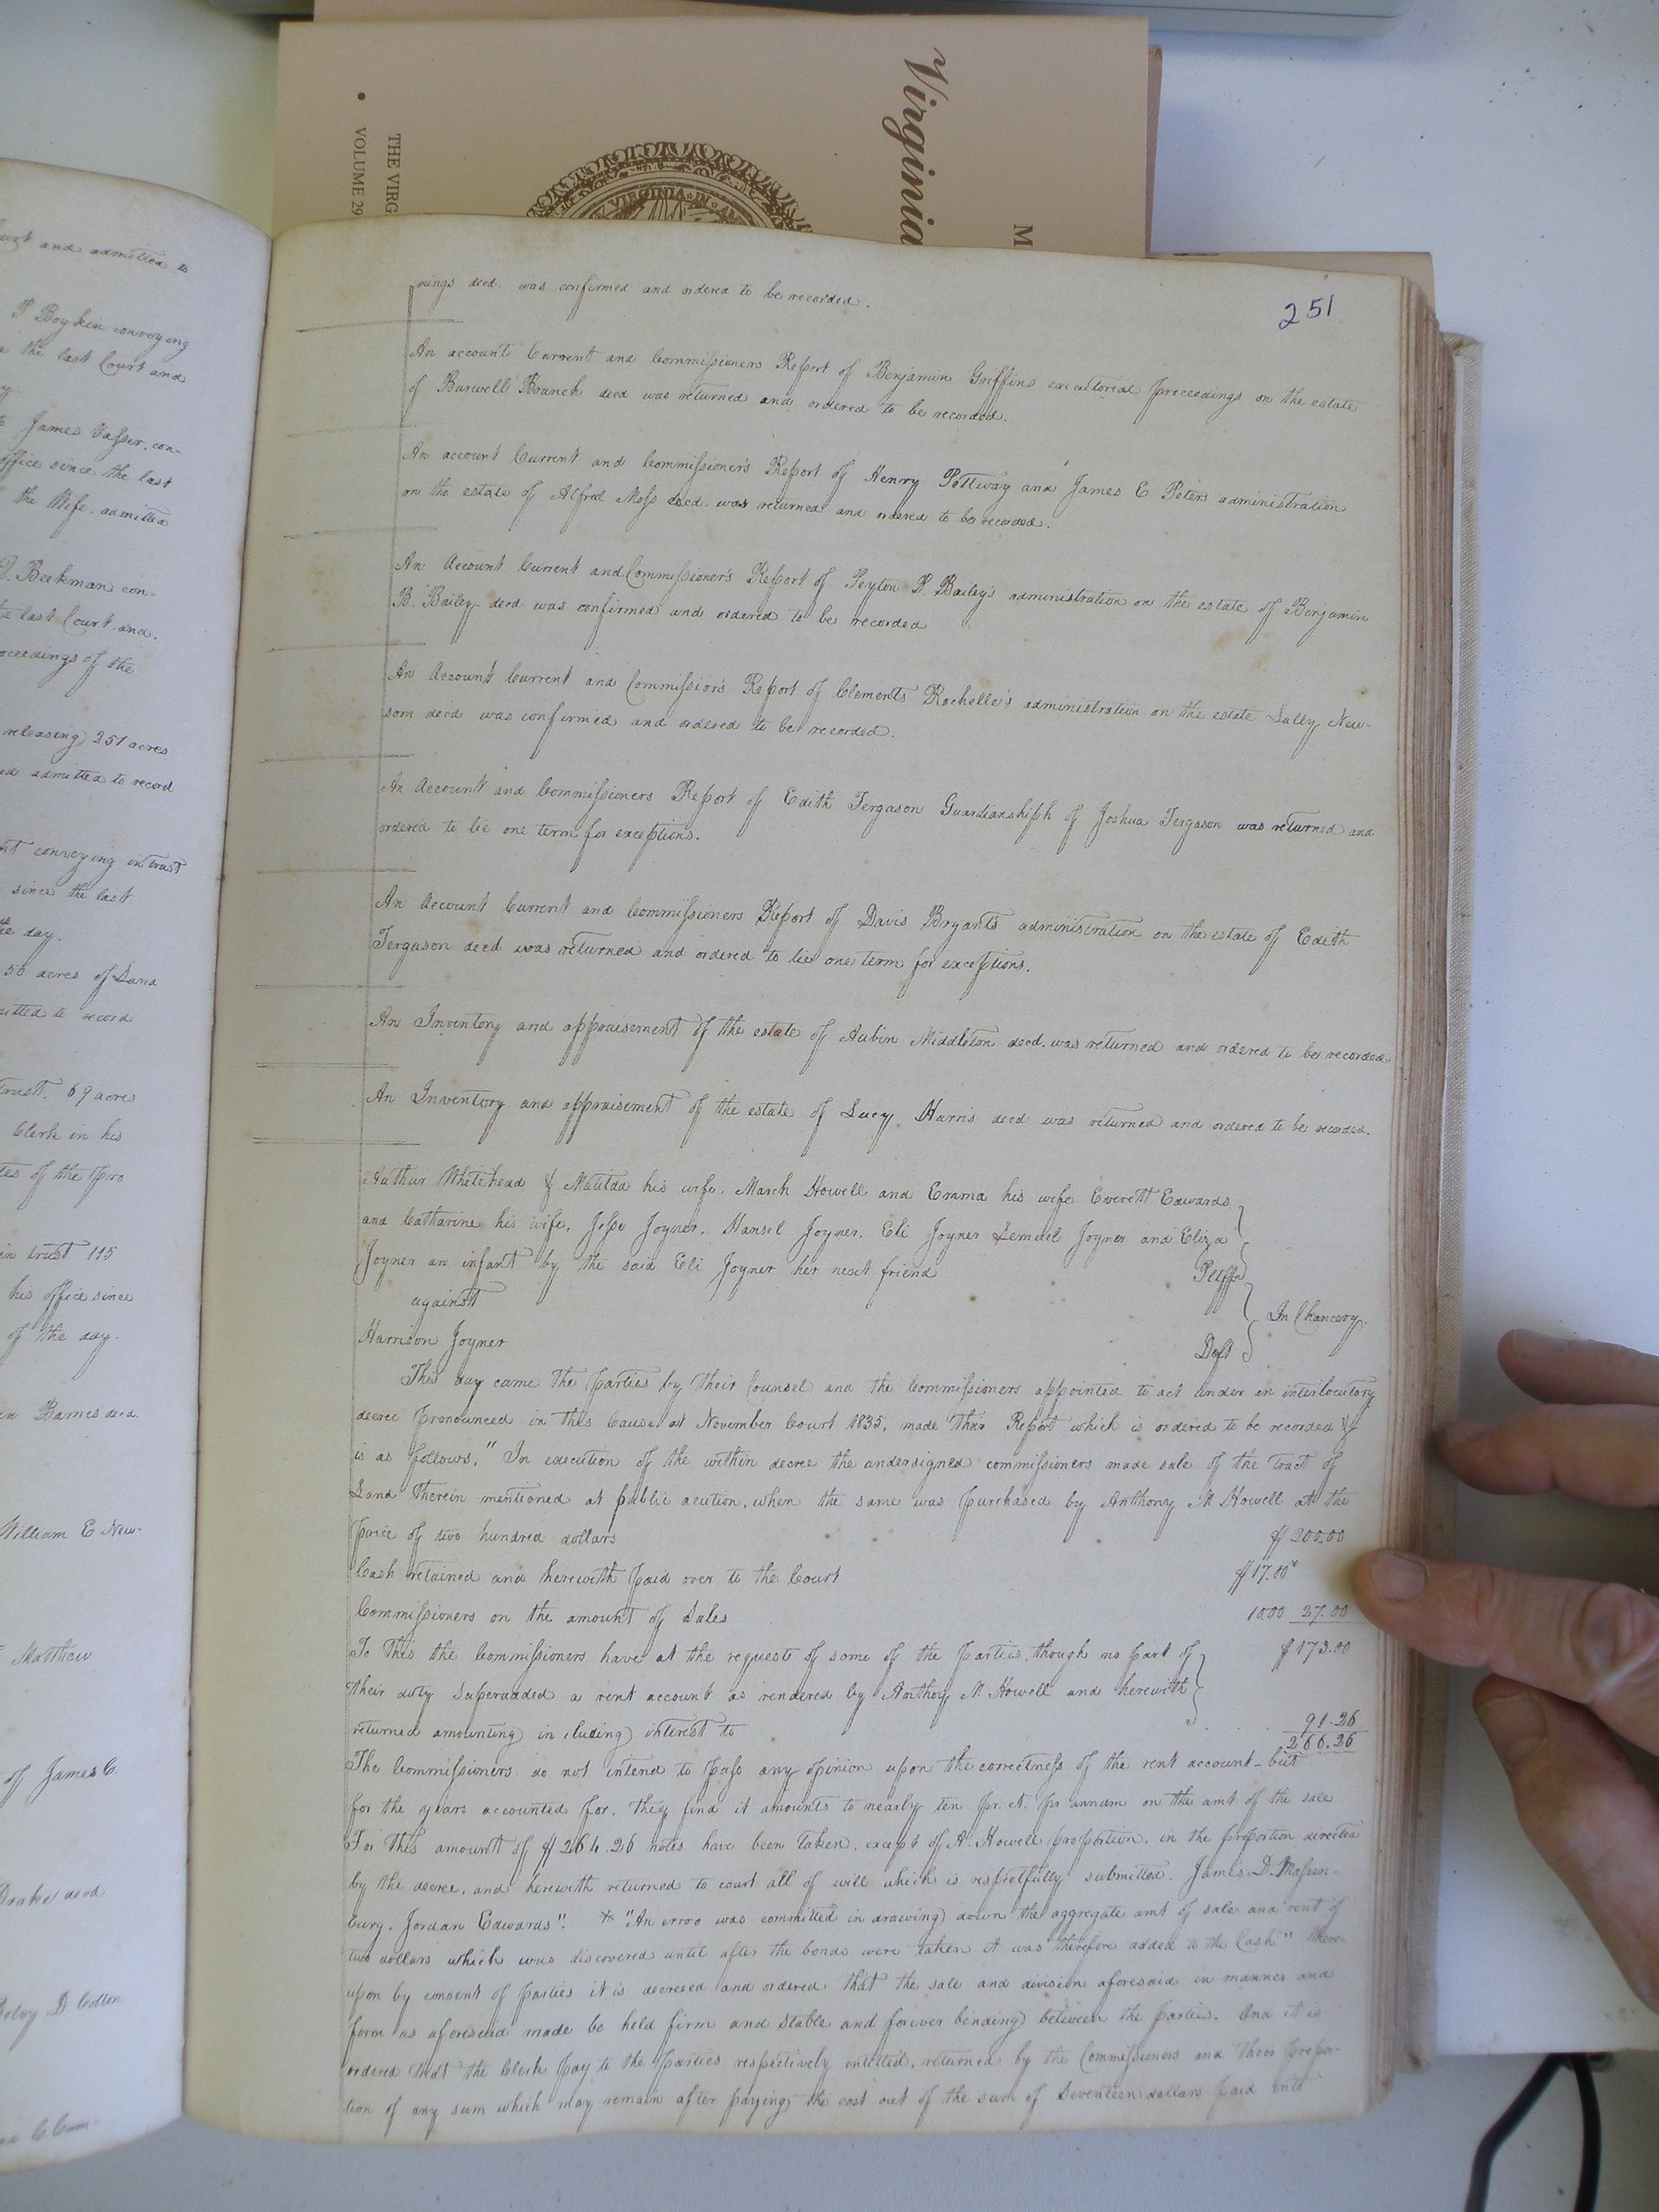 Virginia
M
THE VIRG
VOLUME 29
VIRGINIA IN
urt and admitted to
P Boykin conveying
the last Court and
James Vasser, con-
office since the last
the Wife. admitted
Beekman con-
last Court and
oceedings of the
releasing 251 acres
admitted to record
conveying in trust
since the last
day.
50 acres of Land
mitted to record
trust. 69 acres
Clerk in his
of the pro
in trust 115
his office since
of the day.
Barnes decd.
William E New-
Matthew
of James C
Drake decd
251
ings decd. was confirmed and ordered to be recorded.
An account Current and Commissioners Report of Benjamin Griffins executorial proceedings on the estate
of Burwell Branch decd was returned and ordered to be recorded.
An account Current and Commissioner's Report of Henry Pettway and James E Peters administration
on the estate of Alfred Moss decd. was returned and ordered to be recorded.
An Account Current and Commissioner's Report of Peyton P. Bailey's administration on the estate of Benjamin
B. Bailey decd was confirmed and ordered to be recorded
An Account Current and Commission's Report of Clements Rochelle's administration on the estate Sally New-
som decd was confirmed and ordered to be recorded.
An Account and Commissioners Report of Edith Fergason Guardianshiph of Joshua Fergason was returned and
ordered to lie one term for exceptions.
An Account Current and Commissioners Report of Davis Bryant's administration on the estate of Edith
Fergason decd was returned and ordered to lie one term for exceptions.
An Inventory and appraisement of the estate of Aubin Middleton decd. was returned and ordered to be recorded
An Inventory and appraisement of the estate of Lucy Harris decd was returned and ordered to be recorded.
Arthur Whitehead & Matilda his wife. March Howell and Emma his wife Everett Edwards
and Catharine his wife, Jesse Joyner, Hansel Joyner, Eli Joyner Lemuel Joyner and Eliza
Joyner an infant by the said Eli Joyner her next friend Pltffs
against In Chancery.
Harrison Joyner Deft
This day came the parties by their Counsel and the Commissioners appointed to act under an interlocutory
decree pronounced in this Cause at November Court 1835, made their Report which is ordered to be recorded &
is as follows, " In execution of the within decree the undersigned commissioners made sale of the tract of
Land therein mentioned at public auction, when the same was purchased by Anthony M Howell at the
price of two hundred dollars $200.00
Cash retained and herewith paid over to the Court $17.00*
Commissioners on the amount of Sales 10.00 27.00
To this the Commissioners have at the requests of some of the parties, though no part of $173.00
their duty Superadded a rent account as rendered by Anthony M. Howell and herewith
returned amounting including interest to 91.26
266.26
The Commissioners do not intend to pass any opinion upon the correctness of the rent account - but
for the years accounted for, they find it amounts to nearly ten pr. ct. pr annum on the amt of the sale
For this amount of $264.26 notes have been taken, except of A. Howell proportion, in the proportion directed
by the decree, and herewith returned to court all of will which is respectfully submitted. James D. Massen-
burg. Jordan Edwards". * "An error was committed in drawing down the aggregate amt of sale and rent of
two dollars which was discovered until after the bonds were taken it was therefore added to the Cash" there-
upon by consent of parties it is decreed and ordered that the sale and division aforesaid in manner and
form as aforesaid made be held firm and Stable and forever binding between the parties. And it is
ordered that the Clerk pay to the parties respectively entitled, returned by the Commissioners and their propor-
tion of any sum which may remain after paying the cost out of the sum of Seventeen dollars paid into